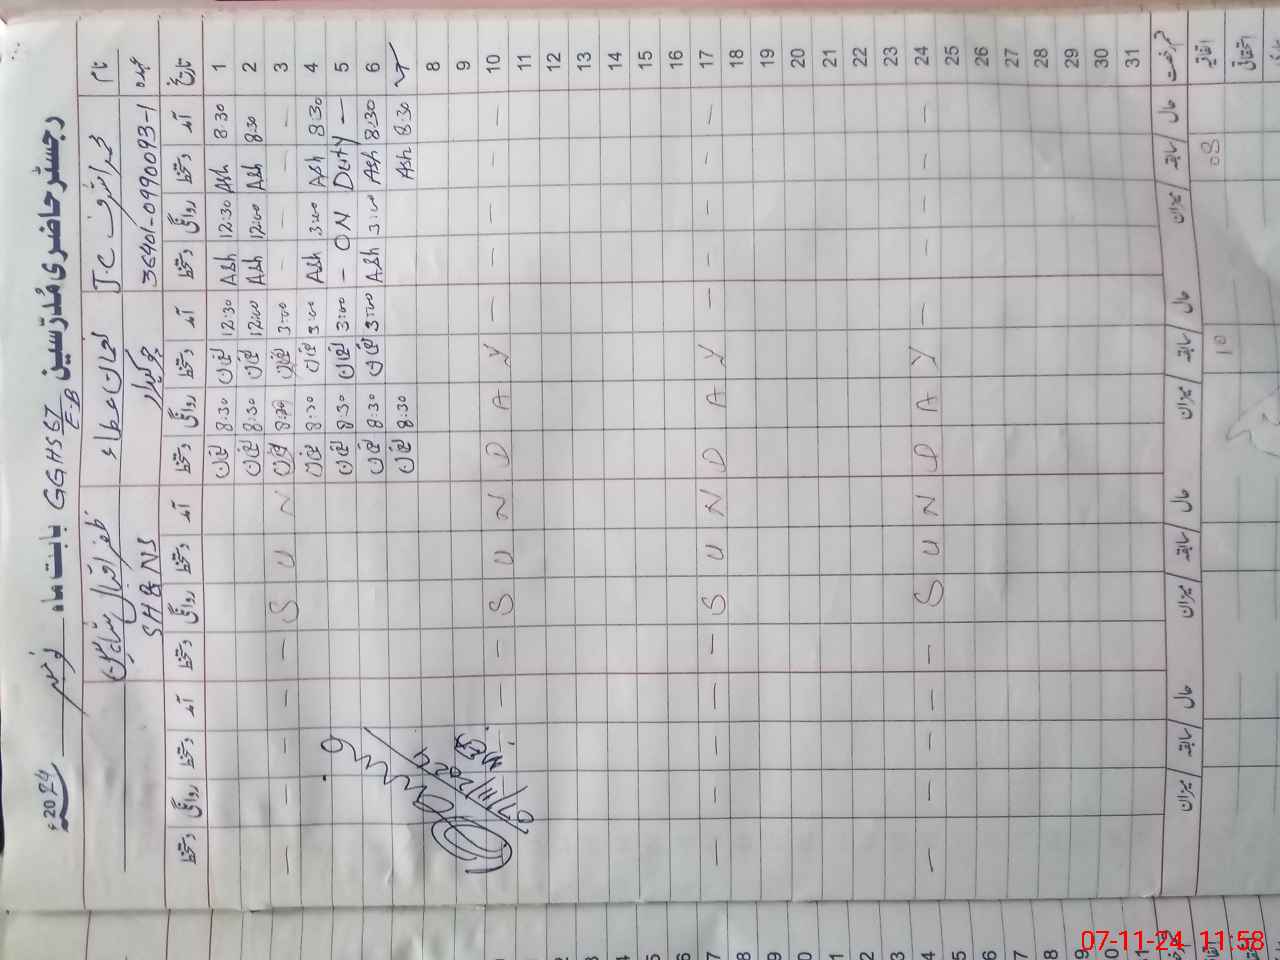 رجسٹر حاضری مدرسین GGHS 67 E.B بابت ماہ نومبر 2024ء
نام محمد اشرف J.C لقمان عطاء ظفر اقبال
عہدہ 36401-0990093-1 چوکیدار SHB NS
تاریخ آمد دستخط روانگی دستخط آمد دستخط روانگی دستخط آمد دستخط روانگی دستخط آمد دستخط روانگی دستخط
1 8:30 Ash 12:30 Ash 12:30 8:30
2 8:30 Ash 12:00 Ash 12:00 8:30
3 — — — — 3:00 8:30 N U S — — — — —
4 8:30 Ash 3:00 Ash 3:00 8:30
5 — Duty ON — 3:00 8:30
6 8:30 Ash 3:00 Ash 3:00 8:30
7 8:30 Ash 8:30
8
9
10 — — — — — Y A D N U S — — —
11
12
13
14
15
16
17 — — — — — Y A D N U S — — — —
18
19
20
21
22
23
24 — — — — — Y A D N U S — — — —
25
26
27
28
29
30
31
07/11/2024
رخصت حال سابقہ میزان حال سابقہ میزان حال سابقہ میزان حال سابقہ میزان
اتفاقیہ 08 10
استحقاقی
07-11-24 11:58